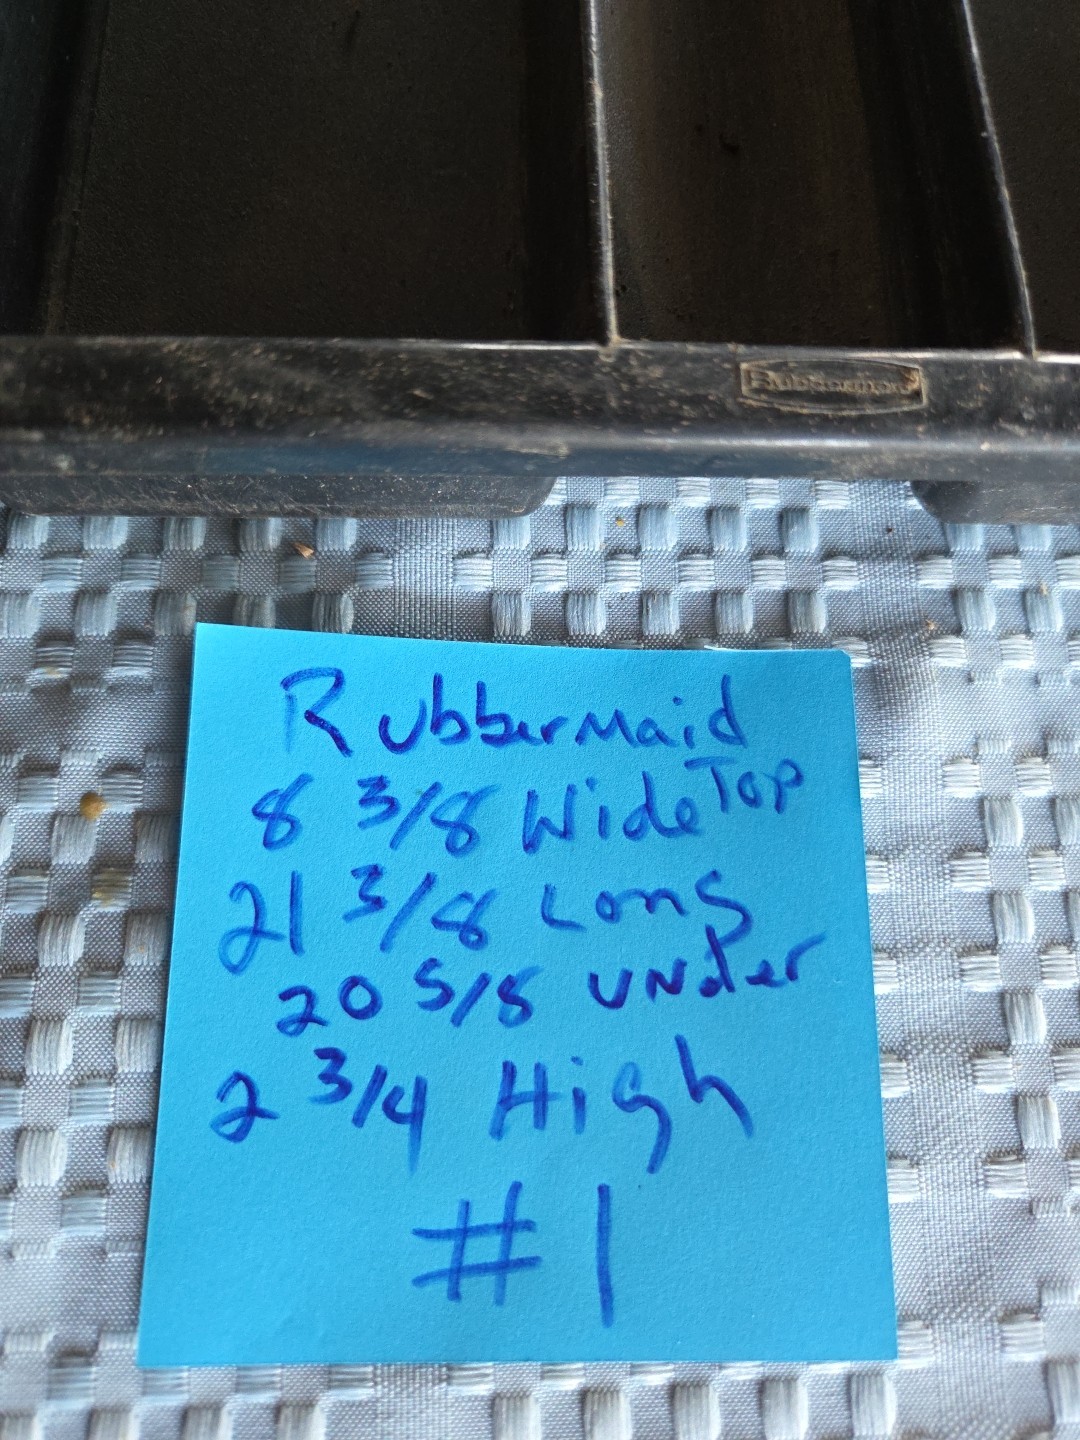 Rubbermaid
Rubbermaid
8 3/8 Wide Top
21 3/8 Long
20 5/8 under
2 3/4 High
#1